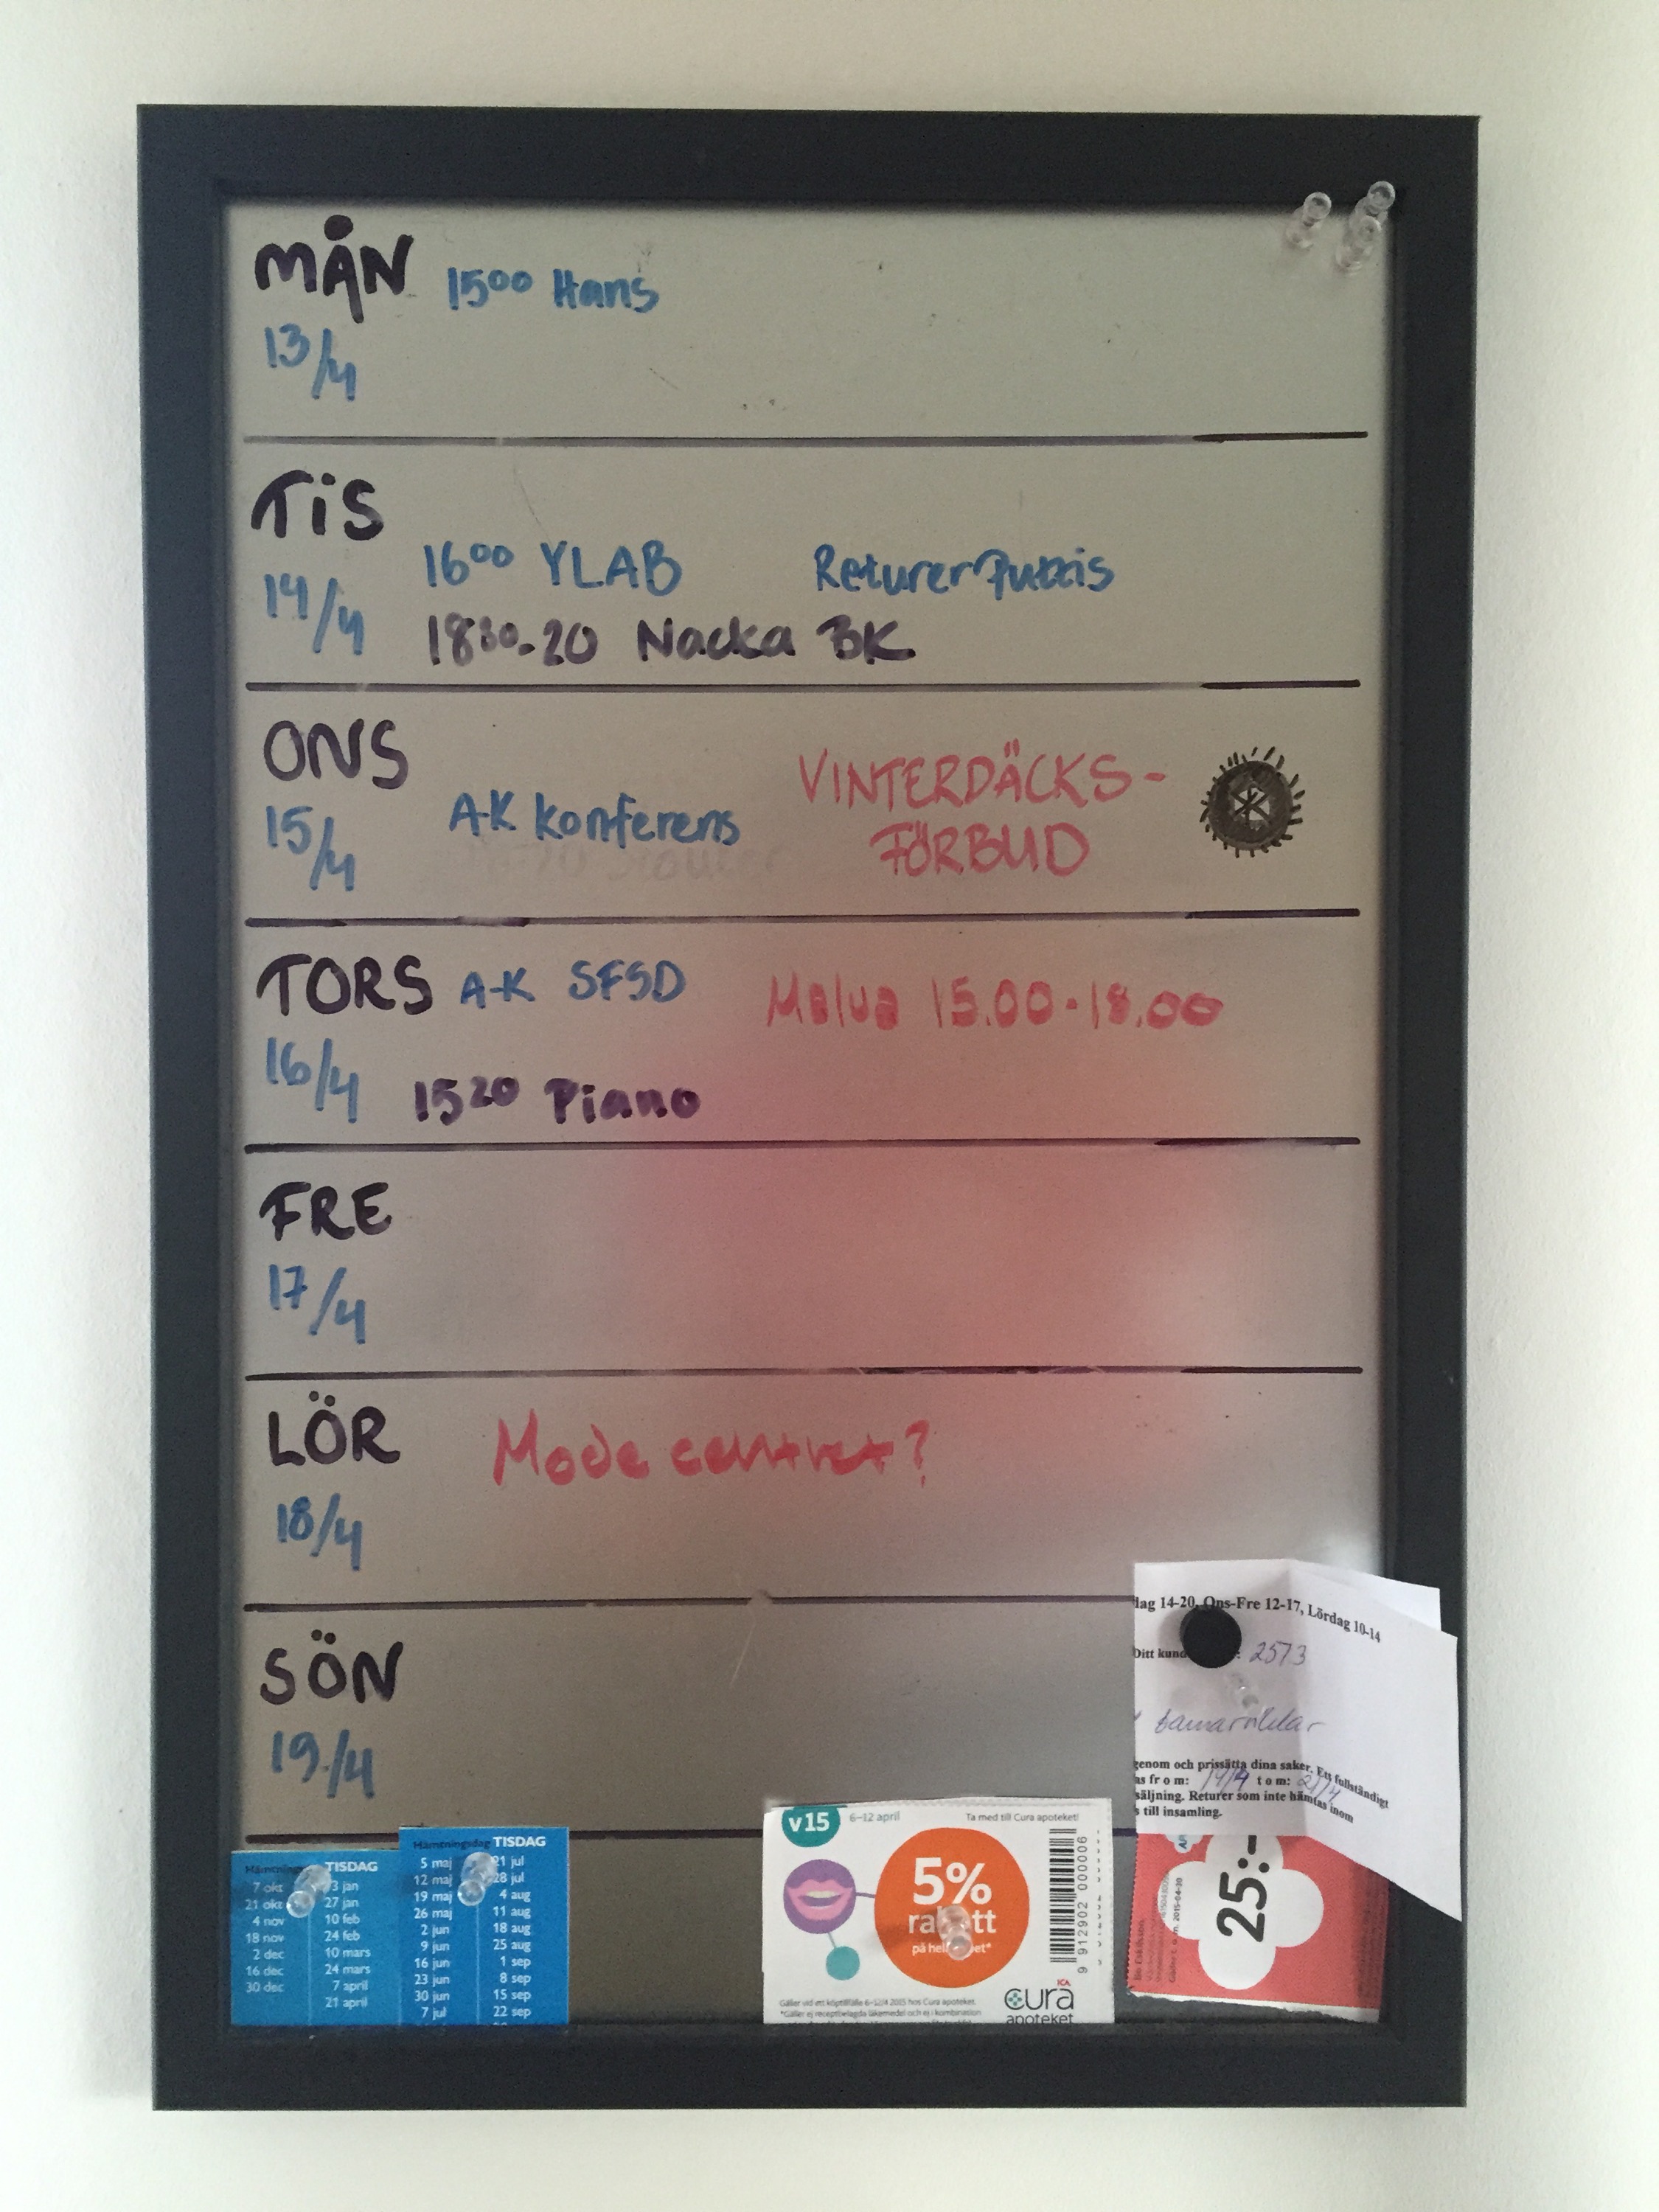 MÅN 15⁰⁰ Hans
13/4
TiS
14/4
16⁰⁰ YLAB Returer Puttis
18³⁰-20 Nacka BK
ONS
15/4
A-K konferens
VINTERDÄCKS-
FÖRBUD
TORS A-K SFSD Malva 15.00-18.00
16/4 15²⁰ Piano
FRE
17/4
LÖR Mode centret?
18/4
SÖN
19/4
dag 14-20, Ons-Fre 12-17, Lördag 10-14
Ditt kund : 2573
genom och prissätta dina saker. Ett fullständigt
as fr o m: 14/4 t o m: 21/4
säljning. Returer som inte hämtas inom
s till insamling.
TISDAG
7 okt 13 jan
21 okt 27 jan
4 nov 10 feb
18 nov 24 feb
2 dec 10 mars
16 dec 24 mars
30 dec 7 april
21 april
Hämtningsdag TISDAG
5 maj 21 jul
12 maj 28 jul
19 maj 4 aug
26 maj 11 aug
2 jun 18 aug
9 jun 25 aug
16 jun 1 sep
23 jun 8 sep
30 jun 15 sep
7 jul 22 sep
v15 6-12 april Ta med till Cura apoteket!
5%
rabatt
9 912902 000006
Gäller vid ett köptillfälle 6-12/4 2015 hos Cura apoteket.
*Gäller ej receptbelagda läkemedel och ej i kombination
ICA
cura
apoteket
25:-